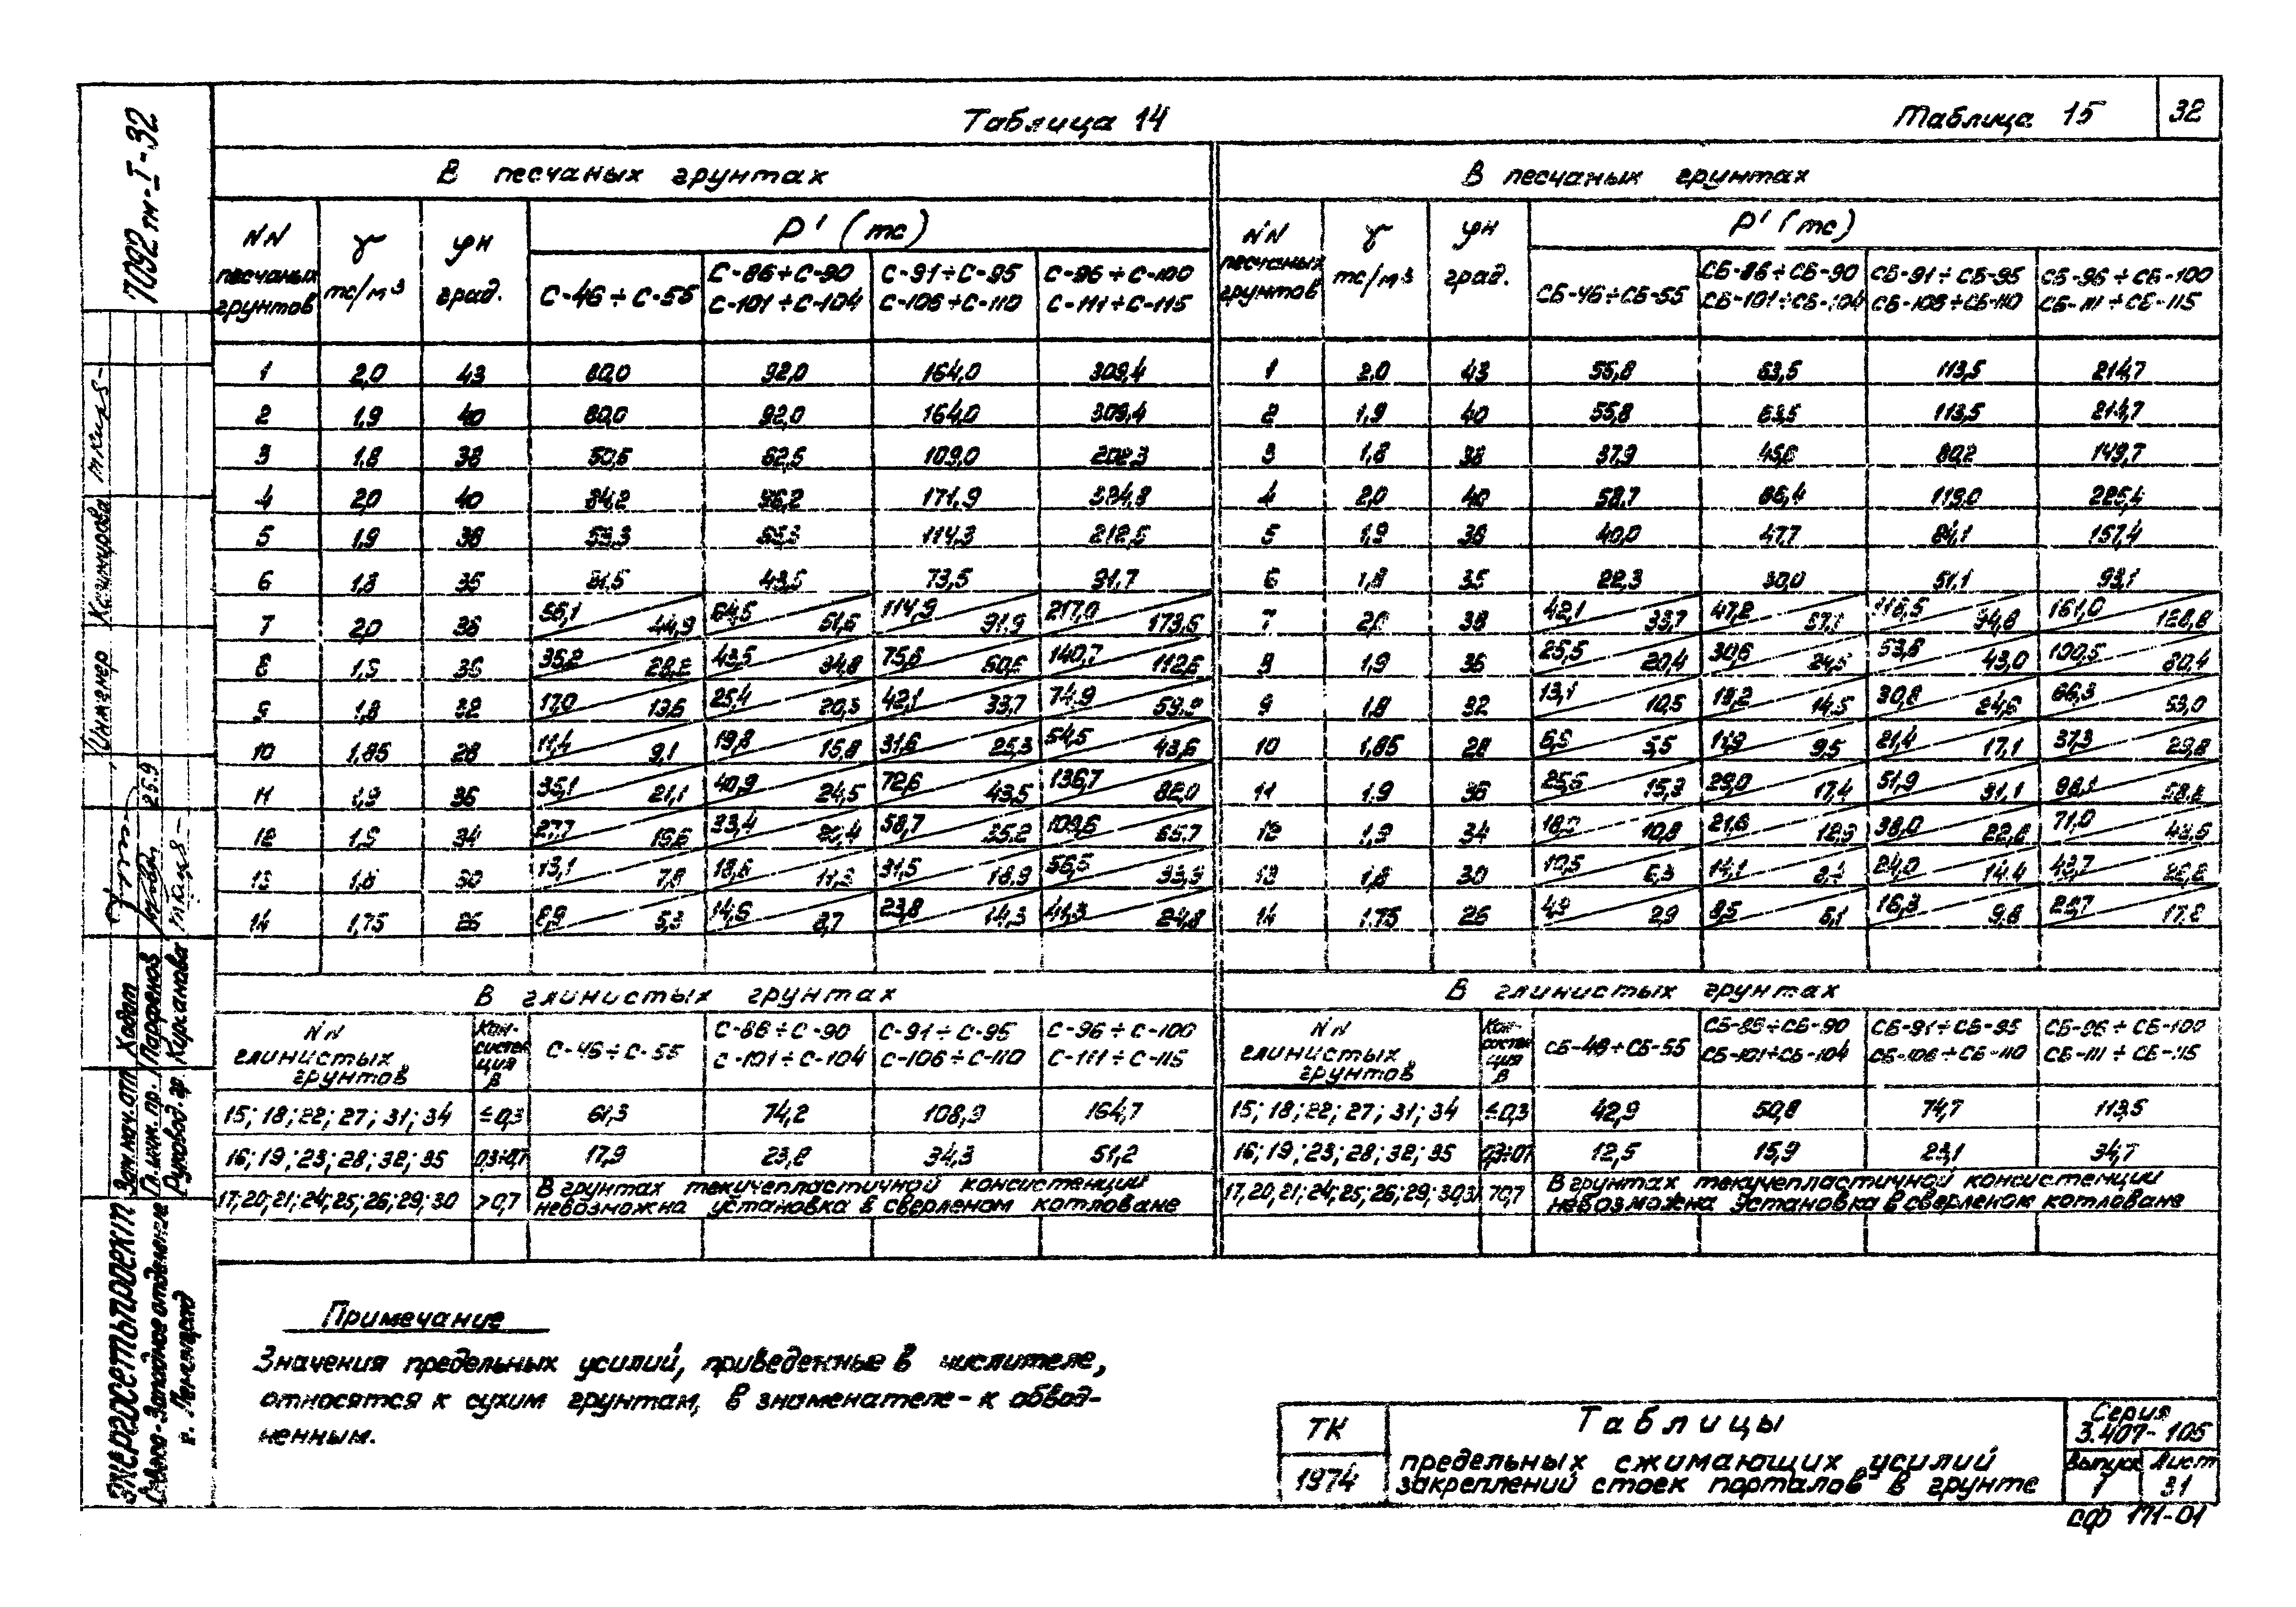 Таблица 14
Таблица 15
32
В песчаных грунтах
NN песчаных грунтов
γ тс/м3
φн град.
P' (тс)
С-46÷С-55
С-86÷С-90 С-101÷С-104
С-91÷С-95 С-106÷С-110
С-96÷С-100 С-111÷С-115
1 2,0 43 80,0 92,0 164,0 309,4
2 1,9 40 80,0 92,0 164,0 309,4
3 1,8 38 62,5 109,0 202,3
4 2,0 40 171,9
5 1,9 114,3
6 1,8 35 43,5 73,5 91,7
7 2,0 38 56,1/44,9 64,5/51,6 114,9/91,9 217,0/173,6
8 35,2/28,2 43,5/34,8 140,7/112,6
9 1,8 32 17,0/13,6 25,4/20,3 42,1/33,7 74,9/59,9
10 1,85 28 11,4/9,1 19,8/15,8 31,6/25,3 54,5/43,6
11 1,9 36 35,1/21,1 40,9/24,5 72,6/43,5 136,7/82,0
12 34 27,7/16,6 33,4/20,4 58,7/35,2 109,6/65,7
13 1,8 30 13,1/7,8 31,5/18,9 56,5/33,9
14 1,75 26 8,9/5,3 14,6/8,7 23,8/14,3 41,3/24,8
В песчаных грунтах
NN песчаных грунтов
γ тс/м3
φн град.
P' (тс)
СБ-46÷СБ-55
СБ-86÷СБ-90 СБ-101÷СБ-104
СБ-91÷СБ-95 СБ-106÷СБ-110
СБ-96÷СБ-100 СБ-111÷СБ-115
1 2,0 43 55,8 63,5 113,5 214,7
2 1,9 40 55,8 63,5 113,5 214,7
3 1,8 38 37,9 80,2 149,7
4 2,0 40 58,7 66,4 119,0 225,4
5 1,9 40,0 47,7 84,1 157,4
6 1,8 35 22,3 30,0 51,1 93,1
7 2,0 38 42,1/33,7 47,2/37,7 118,5/94,8 161,0/128,8
8 1,9 36 25,5/20,4 30,6/24,5 53,8/43,0 100,5/80,4
9 1,8 32 13,1/10,5 18,2/14,5 30,8/24,6 66,3/53,0
10 1,85 28 11,9/9,5 21,4/17,1 37,3/29,8
11 1,9 36 25,5/15,3 29,0/17,4 51,9/31,1 98,1/58,8
12 1,9 34 18,0/10,8 21,6/12,9 38,0/22,8 71,0
13 1,8 30 10,5/6,3 14,1 24,0/14,4
14 1,75 26 4,9/2,9 8,5/5,1 16,3/9,8
В глинистых грунтах
NN глинистых грунтов
Кон-систен-ция В
С-46÷С-55
С-86÷С-90 С-101÷С-104
С-91÷С-95 С-106÷С-110
С-96÷С-100 С-111÷С-115
15; 18; 22; 27; 31; 34 ≤0,3 61,3 74,2 108,9 164,7
16; 19; 23; 28; 32; 35 0,3÷0,7 17,9 23,8 34,3 51,2
17; 20; 21; 24; 25; 26; 29; 30 >0,7 В грунтах текучепластичной консистенции
невозможна установка в сверленом котловане
В глинистых грунтах
NN глинистых грунтов
Кон-систен-ция В
СБ-46÷СБ-55
СБ-86÷СБ-90 СБ-101÷СБ-104
СБ-91÷СБ-95 СБ-106÷СБ-110
СБ-96÷СБ-100 СБ-111÷СБ-115
15; 18; 22; 27; 31; 34 ≤0,3 42,9 50,8 74,7 113,5
16; 19; 23; 28; 32; 35 0,3÷0,7 12,5 15,9 23,1 34,7
17; 20; 21; 24; 25; 26; 29; >0,7 В грунтах текучепластичной консистенции
невозможна установка в сверленом котловане
Примечание
Значения предельных усилий, приведенные в числителе,
относятся к сухим грунтам, в знаменателе - к обвод-
ненным.
ТК
1974
Таблицы
предельных сжимающих усилий
закреплений стоек порталов в грунте
Серия
3.407-105
Выпуск 1
Лист 31
сф 171-01
7092тм-I-32
Инженер Касимирова
Зам.нач.отд. Ходот
Гл.инж.пр. Парфенов 25.9
Руковод.гр. Курсанова
Энергосетьпроект
Северо-Западное отделение
г. Ленинград